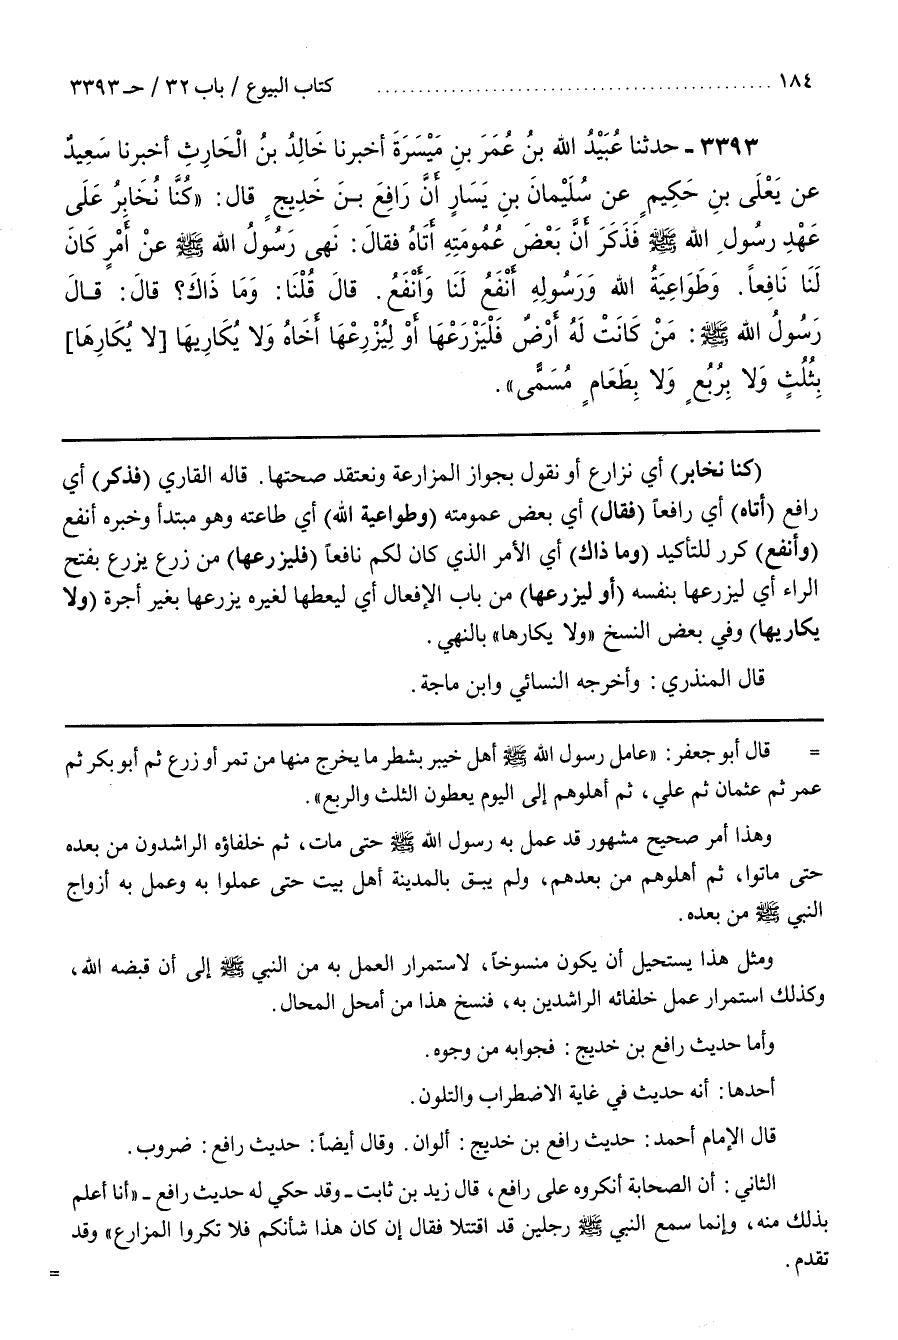 ١٨٤ ........................................ كتاب البيوع / باب ٣٢ / حـ ٣٣٩٣
٣٣٩٣ ـ حدثنا عُبَيْدُ الله بنُ عُمَرَ بنِ مَيْسَرَةَ أخبرنا خَالِدُ بنُ الْحَارِثِ أخبرنا سَعِيدٌ
عن يَعْلَى بنِ حَكِيمٍ عن سُلَيْمانَ بنِ يَسَارٍ أَنَّ رَافِعَ بـنَ خَدِيجٍ قال: «كُنَّا نُخَابِرُ عَلَى
عَهْدِ رسولِ الله ﷺ فَذَكَرَ أَنَّ بَعْضَ عُمُومَتِهِ أَتَاهُ فقالَ: نَهى رَسُولُ الله ﷺ عنْ أَمْرٍ كَانَ
لَنَا نَافِعاً. وَطَوَاعِيَةُ الله وَرَسُولِهِ أَنْفَعُ لَنَا وَأَنْفَعُ. قالَ قُلْنَا: وَمَا ذَاكَ؟ قالَ: قـال
رَسُولُ الله ﷺ: مَنْ كَانَتْ لَهُ أَرْضٌ فَلْيَزْرَعْهَا أَوْ لِيُزْرِعْهَا أَخَاهُ وَلا يُكَارِيهَا [لا يُكَارِهَا]
بِثُلُثٍ وَلا بِرُبُعٍ وَلا بِطَعَامٍ مُسَمًّى».
(كنا نخابر) أي نزارع أو نقول بجواز المزارعة ونعتقد صحتها. قاله القاري (فذكر) أي
رافع (أتاه) أي رافعاً (فقال) أي بعض عمومته (وطواعية الله) أي طاعته وهو مبتدأ وخبره أنفع
(وأنفع) كرر للتأكيد (وما ذاك) أي الأمر الذي كان لكم نافعاً (فليزرعها) من زرع يزرع بفتح
الراء أي ليزرعها بنفسه (أو ليزرعها) من باب الإفعال أي ليعطها لغيره يزرعها بغير أجرة (ولا
يكاريها) وفي بعض النسخ «ولا يكارها» بالنهي.
قال المنذري: وأخرجه النسائي وابن ماجة.
= قال أبو جعفر: «عامل رسول الله ﷺ أهل خيبر بشطر ما يخرج منها من تمر أو زرع ثم أبو بكر ثم
عمر ثم عثمان ثم علي، ثم أهلوهم إلى اليوم يعطون الثلث والربع».
وهذا أمر صحيح مشهور قد عمل به رسول الله ﷺ حتى مات، ثم خلفاؤه الراشدون من بعده
حتى ماتوا، ثم أهلوهم من بعدهم، ولم يبـق بالمدينة أهل بيت حتى عملوا به وعمل به أزواج
النبي ﷺ من بعده.
ومثل هذا يستحيل أن يكون منسوخاً، لاستمرار العمل به من النبي ﷺ إلى أن قبضه الله،
وكذلك استمرار عمل خلفائه الراشدين به، فنسخ هذا من أمحل المحال.
وأما حديث رافع بن خديج: فجوابه من وجوه.
أحدها: أنه حديث في غاية الاضطراب والتلون.
قال الإمام أحمد: حديث رافع بن خديج: ألوان. وقال أيضاً: حديث رافع: ضروب.
الثاني: أن الصحابة أنكروه على رافع، قال زيد بن ثابت ـ وقد حكي له حديث رافع ـ «أنا أعلم
بذلك منه، وإنما سمع النبي ﷺ رجلين قد اقتتلا فقال إن كان هذا شأنكم فلا تكروا المزارع» وقد
تقدم.
=